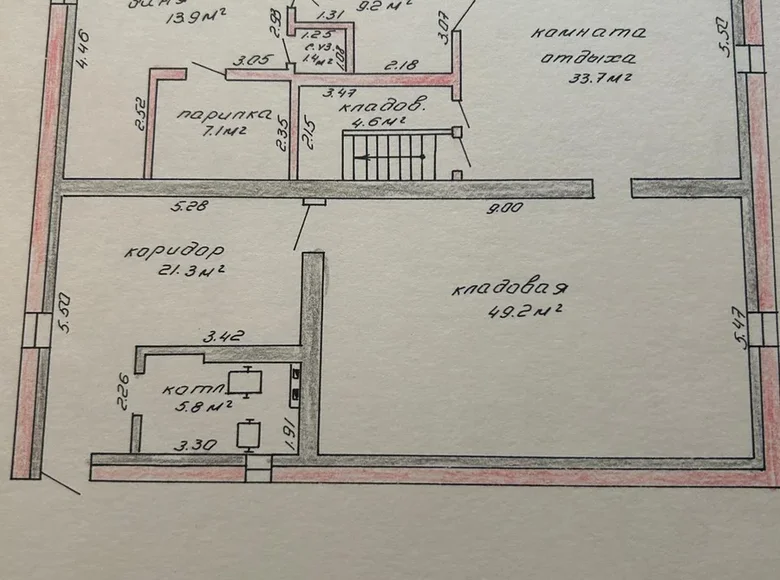 13.9м²
9.2м²
4.46
2.93
1.31
1.25
с.уз.
1.4м²
1.08
3.07
комната
отдыха
33.7м²
5.50
3.05
2.18
3.47
2.52
парилка
7.1м²
2.35
2.15
кладов.
4.6м²
5.28
9.00
коридор
21.3м²
кладовая
49.2м²
5.50
5.47
3.42
2.26
котл.
5.8м²
1.91
3.30